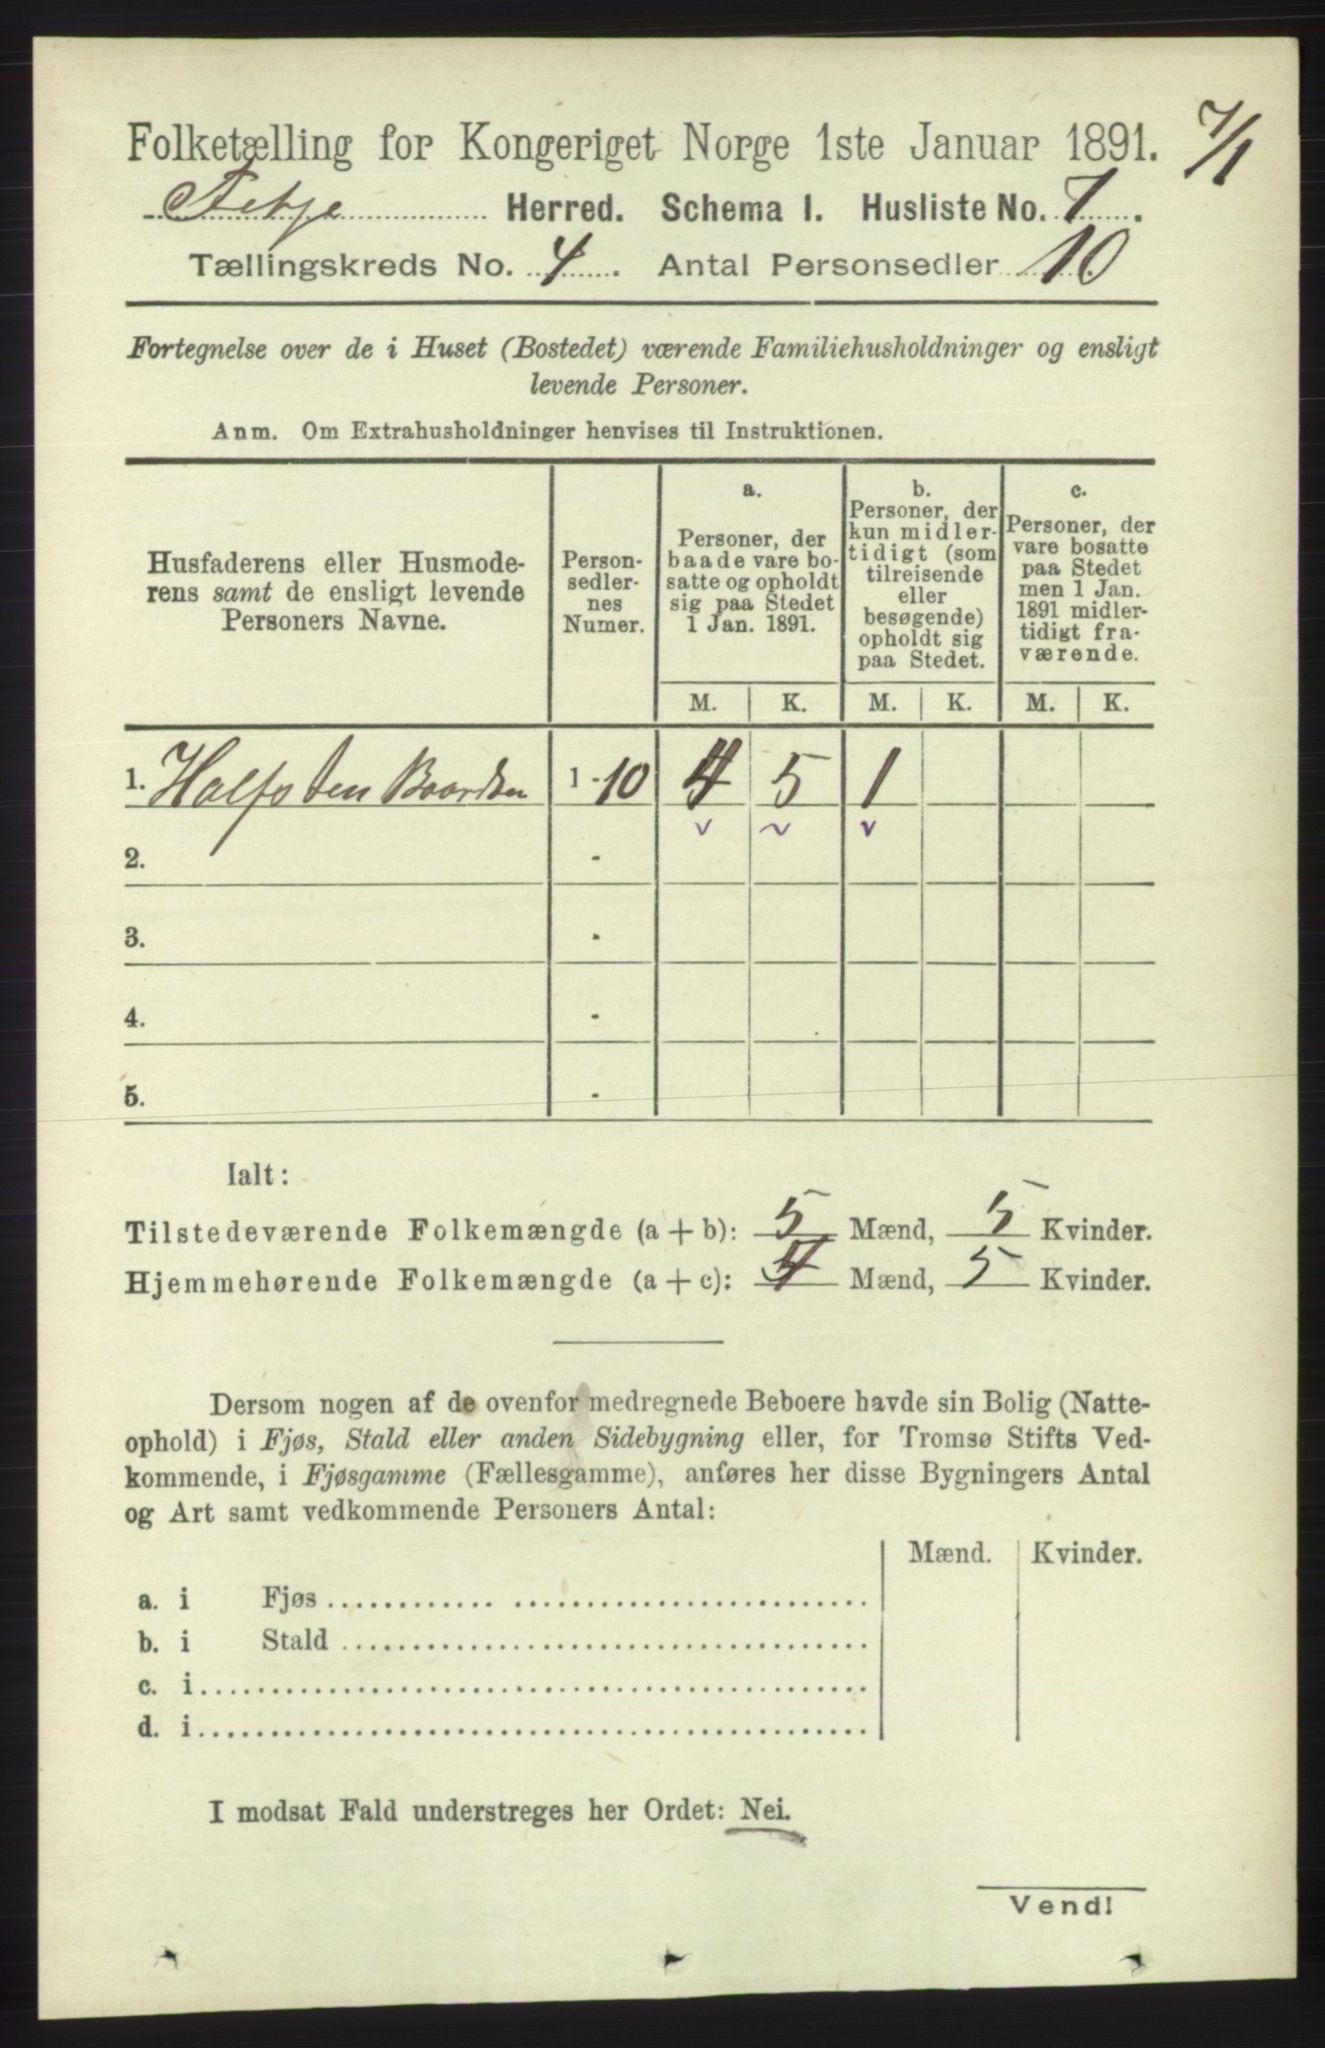 Folketælling for Kongeriget Norge 1ste Januar 1891.
7/1
Fetje Herred. Schema I. Husliste No. 7.
Tællingskreds No. 4. Antal Personsedler 10
Fortegnelse over de i Huset (Bostedet) værende Familiehusholdninger og ensligt
levende Personer.
Anm. Om Extrahusholdninger henvises til Instruktionen.
Husfaderens eller Husmode-
rens samt de ensligt levende
Personers Navne.
Person-
sedler-
nes
Numer.
a.
Personer, der
baade vare bo-
satte og opholdt
sig paa Stedet
1 Jan. 1891.
b.
Personer, der
kun midler-
tidigt (som
tilreisende
eller
besøgende)
opholdt sig
paa Stedet.
c.
Personer, der
vare bosatte
paa Stedet
men 1 Jan.
1891 midler-
tidigt fra-
værende.
M. K. M. K. M. K.
1. Halfsten Baardsen 1-10 4 5 1
2. -
3. -
4. -
5. -
Ialt:
Tilstedeværende Folkemængde (a + b): 5 Mænd, 5 Kvinder.
Hjemmehørende Folkemængde (a + c): 4 Mænd, 5 Kvinder.
Dersom nogen af de ovenfor medregnede Beboere havde sin Bolig (Natte-
ophold) i Fjøs, Stald eller anden Sidebygning eller, for Tromsø Stifts Ved-
kommende, i Fjøsgamme (Fællesgamme), anføres her disse Bygningers Antal
og Art samt vedkommende Personers Antal:
Mænd. Kvinder.
a. i Fjøs
b. i Stald
c. i
d. i
I modsat Fald understreges her Ordet: Nei.
Vend!